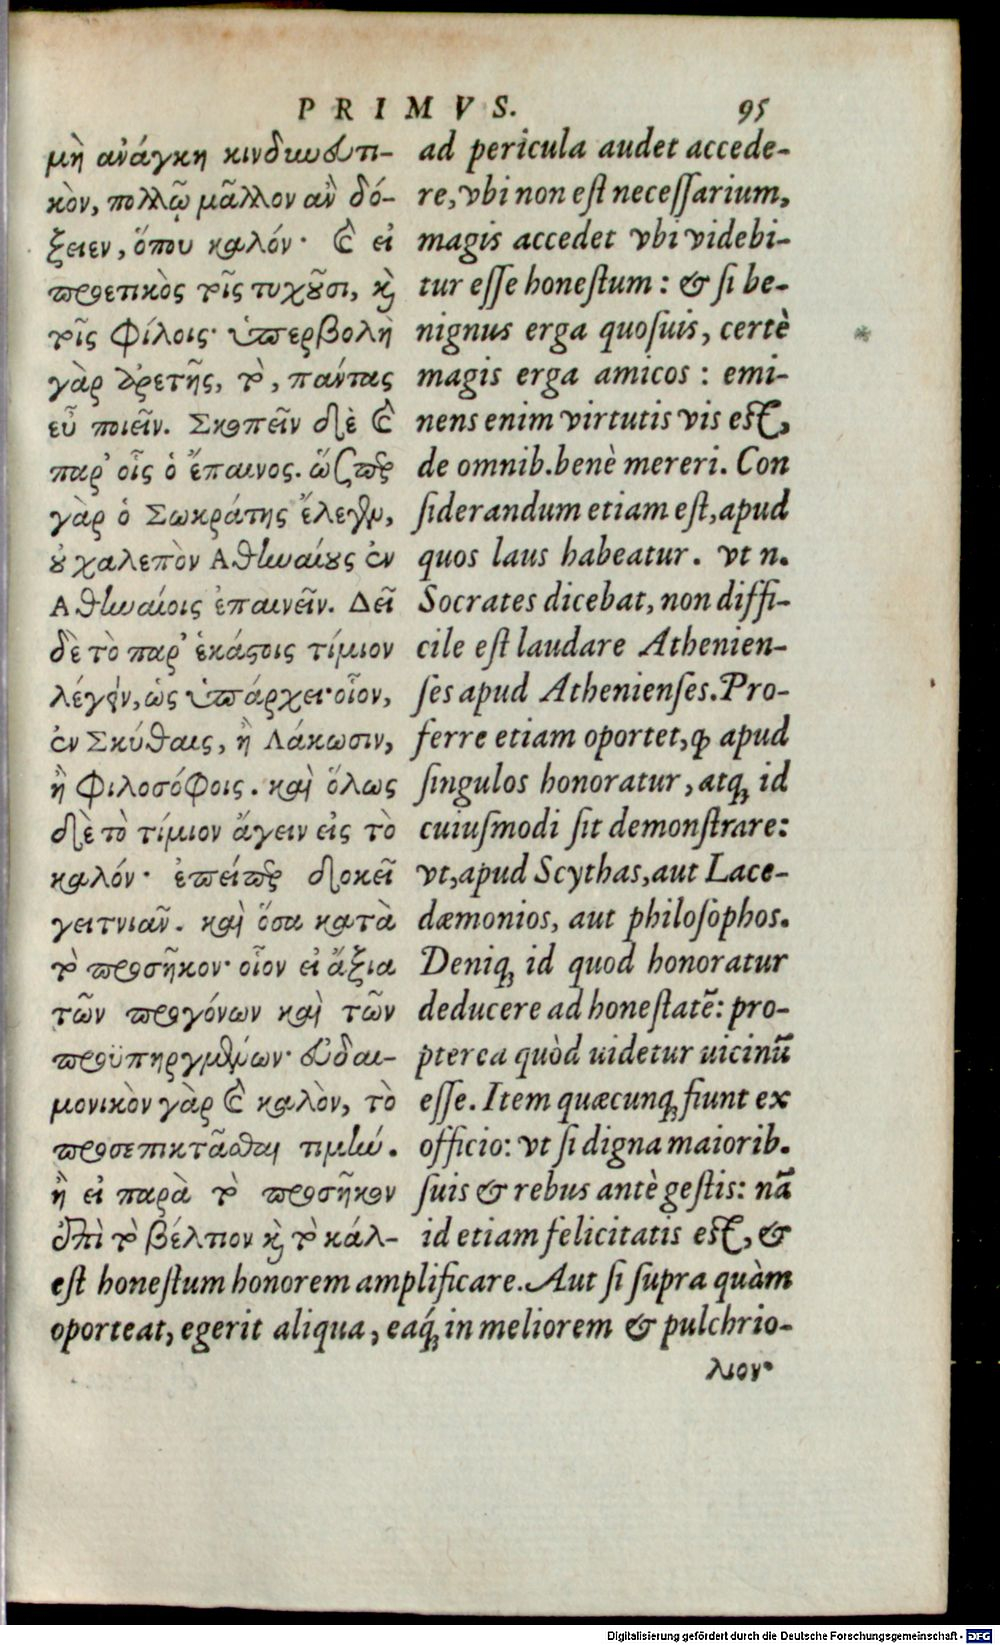 PRIMVS. 95
μὴ ἀνάγκη κινδυνευτι-
κὸν, πολλῷ μᾶλλον ἂν δό-
ξειεν, ὅπου καλόν· καὶ εἰ
προετικὸς τοῖς τυχοῦσι, καὶ
τοῖς φίλοις· ὑπερβολὴ
γὰρ ἀρετῆς, τὸ, πάντας
εὖ ποιεῖν. Σκοπεῖν δὲ καὶ
παρ' οἷς ὁ ἔπαινος. ὥσπερ
γὰρ ὁ Σωκράτης ἔλεγεν,
οὐ χαλεπὸν Ἀθηναίους ἐν
Ἀθηναίοις ἐπαινεῖν. Δεῖ
δὲ τὸ παρ' ἑκάστοις τίμιον
λέγειν, ὡς ὑπάρχει· οἷον,
ἐν Σκύθαις, ἢ Λάκωσιν,
ἢ Φιλοσόφοις. καὶ ὅλως
δὲ τὸ τίμιον ἄγειν εἰς τὸ
καλόν· ἐπείπερ δοκεῖ
γειτνιᾶν. καὶ ὅσα κατὰ
τὸ προσῆκον· οἷον εἰ ἄξια
τῶν προγόνων καὶ τῶν
προϋπηργμένων· εὐδαι-
μονικὸν γὰρ καὶ καλὸν, τὸ
προσεπικτᾶσθαι τιμήν.
ἢ εἰ παρὰ τὸ προσῆκον
ἐπὶ τὸ βέλτιον καὶ τὸ κάλ-
ad pericula audet accede-
re, vbi non est necessarium,
magis accedet vbi videbi-
tur esse honestum: & si be-
nignus erga quosuis, certè
magis erga amicos: emi-
nens enim virtutis vis est,
de omnib. benè mereri. Con
siderandum etiam est, apud
quos laus habeatur. vt n.
Socrates dicebat, non diffi-
cile est laudare Athenien-
ses apud Athenienses. Pro-
ferre etiam oportet, ꝙ apud
singulos honoratur, atq; id
cuiusmodi sit demonstrare:
vt, apud Scythas, aut Lace-
dæmonios, aut philosophos.
Deniq; id quod honoratur
deducere ad honestatē: pro-
pterea quòd uidetur uicinū
esse. Item quæcunq; fiunt ex
officio: vt si digna maiorib.
suis & rebus antè gestis: nā
id etiam felicitatis est, &
est honestum honorem amplificare. Aut si supra quàm
oporteat, egerit aliqua, eaq́; in meliorem & pulchrio-
λιον·
Digitalisierung gefördert durch die Deutsche Forschungsgemeinschaft - DFG